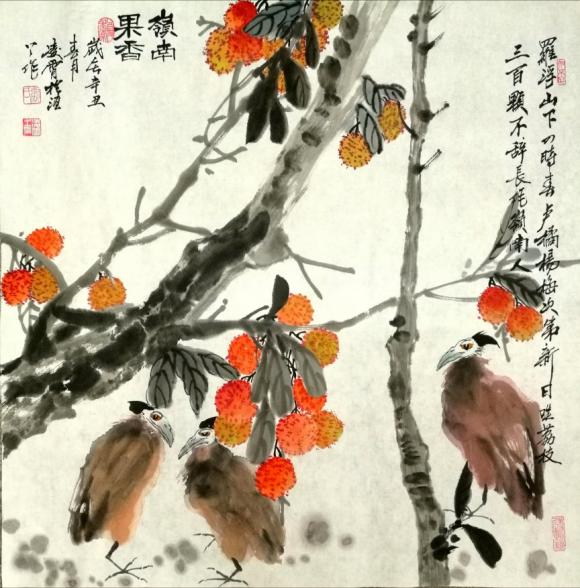 羅浮山下四時春卢橘楊梅次第新日啖荔枝
三百顆不辭長作嶺南人
嶺南
果香
歲在辛丑
春月